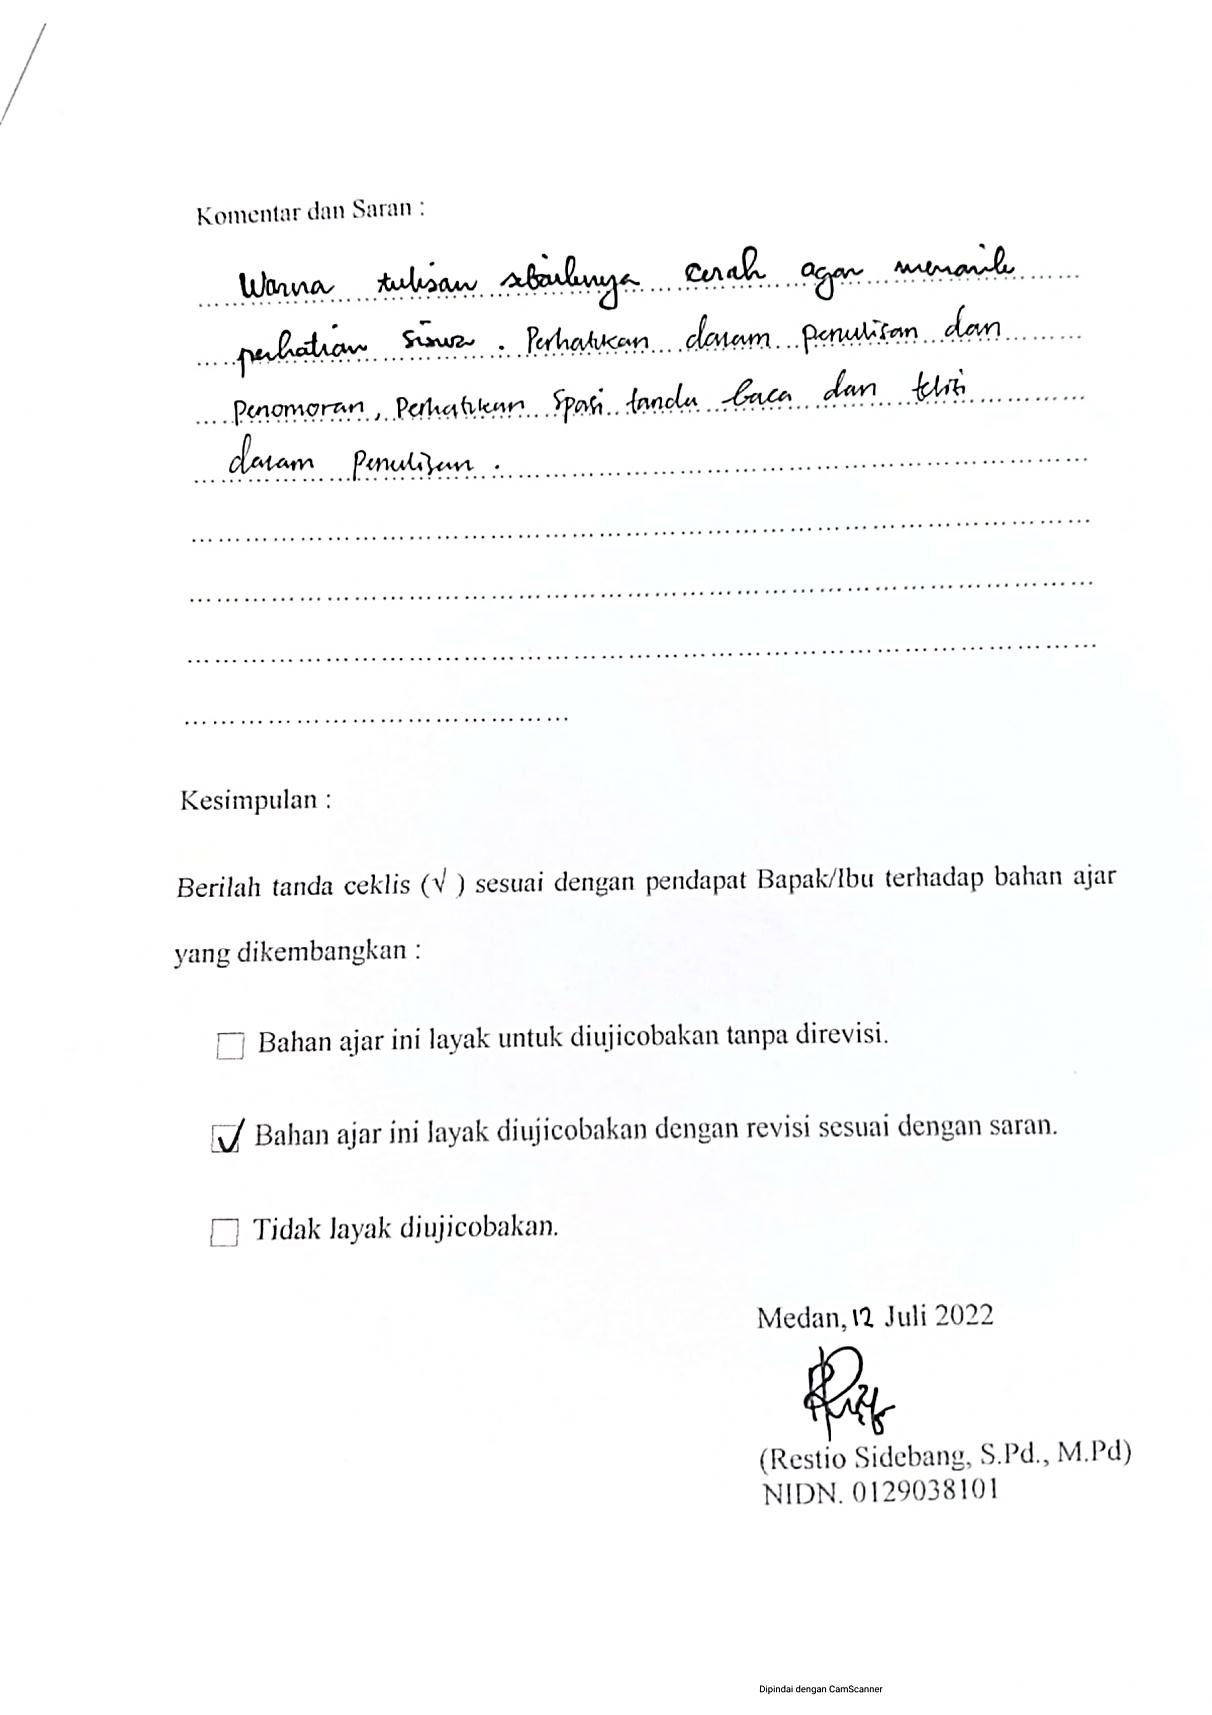 Komentar dan Saran :
Warna tulisan sebaiknya cerah agar menarik
perhatian siswa. Perhatikan dalam penulisan dan
Penomoran, Perhatikan Spasi tanda baca dan teliti
dalam Penulisan.
Kesimpulan :
Berilah tanda ceklis (√ ) sesuai dengan pendapat Bapak/Ibu terhadap bahan ajar
yang dikembangkan :
Bahan ajar ini layak untuk diujicobakan tanpa direvisi.
Bahan ajar ini layak diujicobakan dengan revisi sesuai dengan saran.
Tidak layak diujicobakan.
Medan, 12 Juli 2022
(Restio Sidebang, S.Pd., M.Pd)
NIDN. 0129038101
Dipindai dengan CamScanner